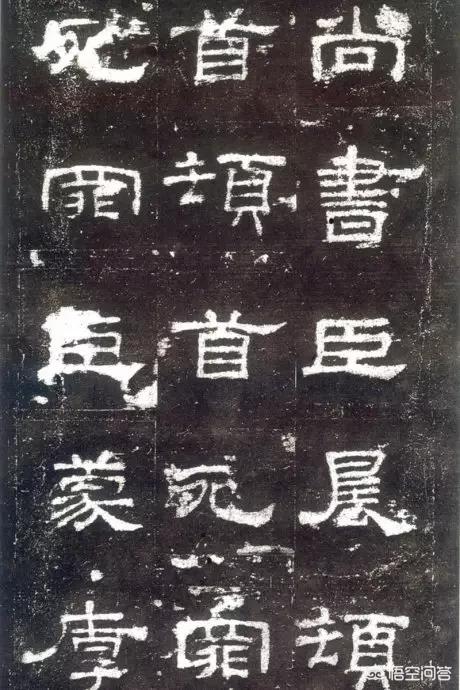 尚書臣晨頓
首頓首死罪
死罪臣蒙厚
悟空问答